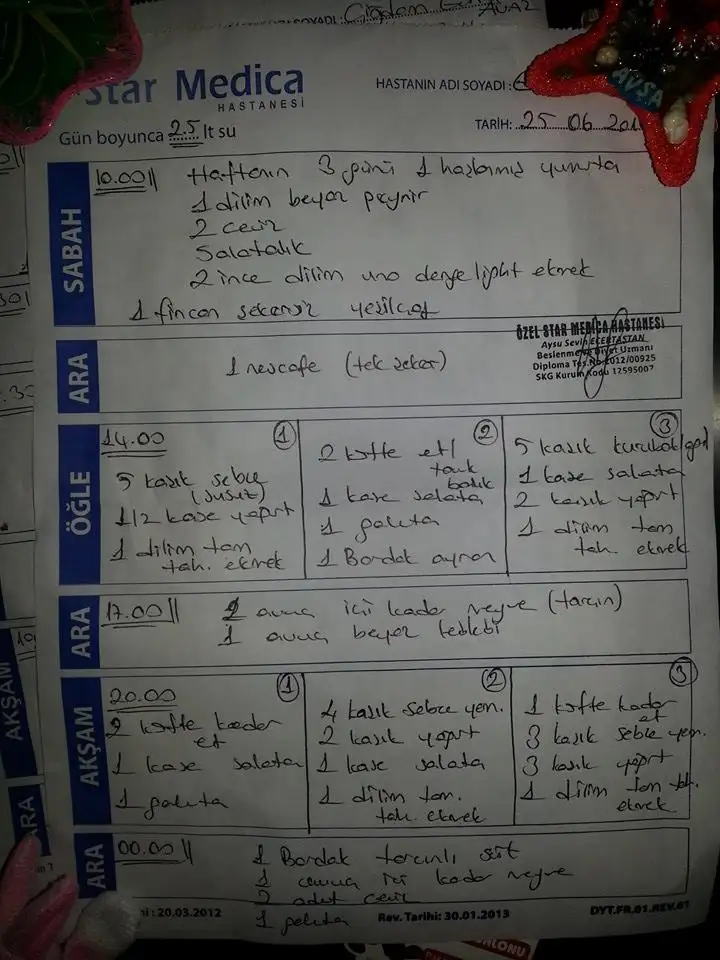 Star Medica
HASTANESİ
HASTANIN ADI SOYADI :
Gün boyunca 2.5 lt su
TARİH: 25 06 201
SABAH
10.00 Haftanın 3 günü 1 haşlanmış yumurta
1 dilim beyaz peynir
2 ceviz
Salatalık
2 ince dilim uno denge light ekmek
1 fincan şekersiz yeşilçay
ARA
1 nescafe (tek şeker)
ÖZEL STAR MEDİCA HASTANESİ
Aysu Sevin
Beslenme ve Diyet Uzmanı
Diploma Tes.No 2012/00925
SKG Kurum Kodu 12595007
ÖĞLE
14.00 1
5 kaşık sebze
(susuz)
1/2 kase yoğurt
1 dilim tam
tah. ekmek
2
2 köfte et/
tavuk
balık
1 kase salata
1 galeta
1 Bardak ayran
3
5 kaşık kurubak/
1 kase salata
2 kaşık yoğurt
1 dilim tam
tah. ekmek
ARA
17.00 avuç içi kadar meyve (tarçın)
1 avuç beyaz leblebi
AKŞAM
20.00 1
2 köfte kadar
et
1 kase salata
1 galeta
2
4 kaşık sebze yem.
2 kaşık yoğurt
1 kase salata
1 dilim tam.
tah. ekmek
3
1 köfte kadar
et
3 kaşık sebze yem.
3 kaşık yoğurt
1 dilim tam tah.
ekmek
ARA
00.00 1 Bardak tarçınlı süt
1 avuç içi kadar meyve
2 adet ceviz
1 galeta
: 20.03.2012
Rev. Tarihi: 30.01.2013
DYT.FR.01.REV.01
AVŞA
AKŞAM
ARA